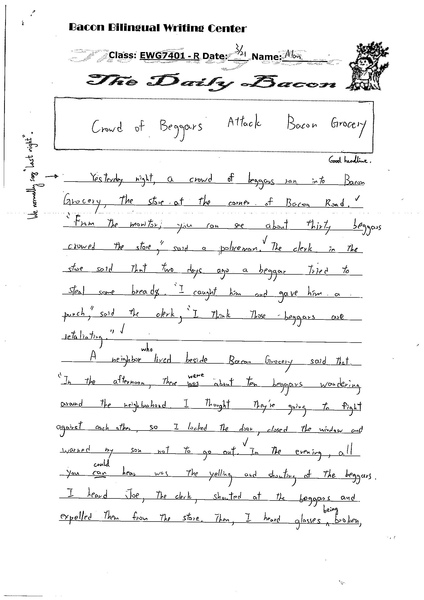 Bacon Bilingual Writing Center
Class: EWG7401 - R Date: 3/21 Name:
The Daily Bacon
Crowd of Beggars Attack Bacon Grocery
Good headline.
We normally say "last night".
Yesterday night, a crowd of beggars ran into Bacon
Grocery, the store at the corner of Bacon Road.
"From the monitor, you can see about thirty beggars
crowd the store," said a policeman. The clerk in the
store said that two days ago a beggar tried to
steal some bread. "I caught him and gave him a
punch," said the clerk, "I think those beggars are
retaliating."
who
A neighbor lived beside Bacon Grocery said that
were
"In the afternoon, there was about ten beggars wandering
around the neighborhood. I thought they're going to fight
against each other, so I locked the door, closed the window and
warned my son not to go out. In the evening, all
could
you can hear was the yelling and shouting of the beggars.
I heard Joe, the clerk, shouted at the beggars and
being
expelled them from the store. Then, I heard glasses broken,